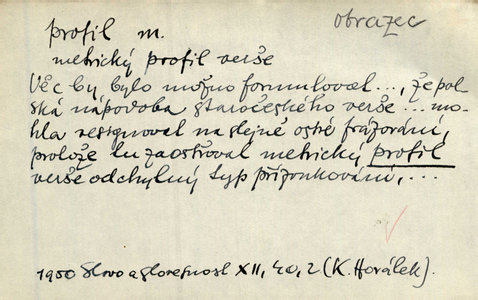 obrazec
profil m.
metrický profil verše
Věc by bylo možno formulovat ..., že pol-
ská nápodoba staročeského verše ... mo-
hla resignovat na stejně ostré frázování,
protože tu zaostřoval metrický profil
verše odchylný typ přízvukování, ...
1950 Slovo a slovesnost XII, 40, 2 (K. Horálek).